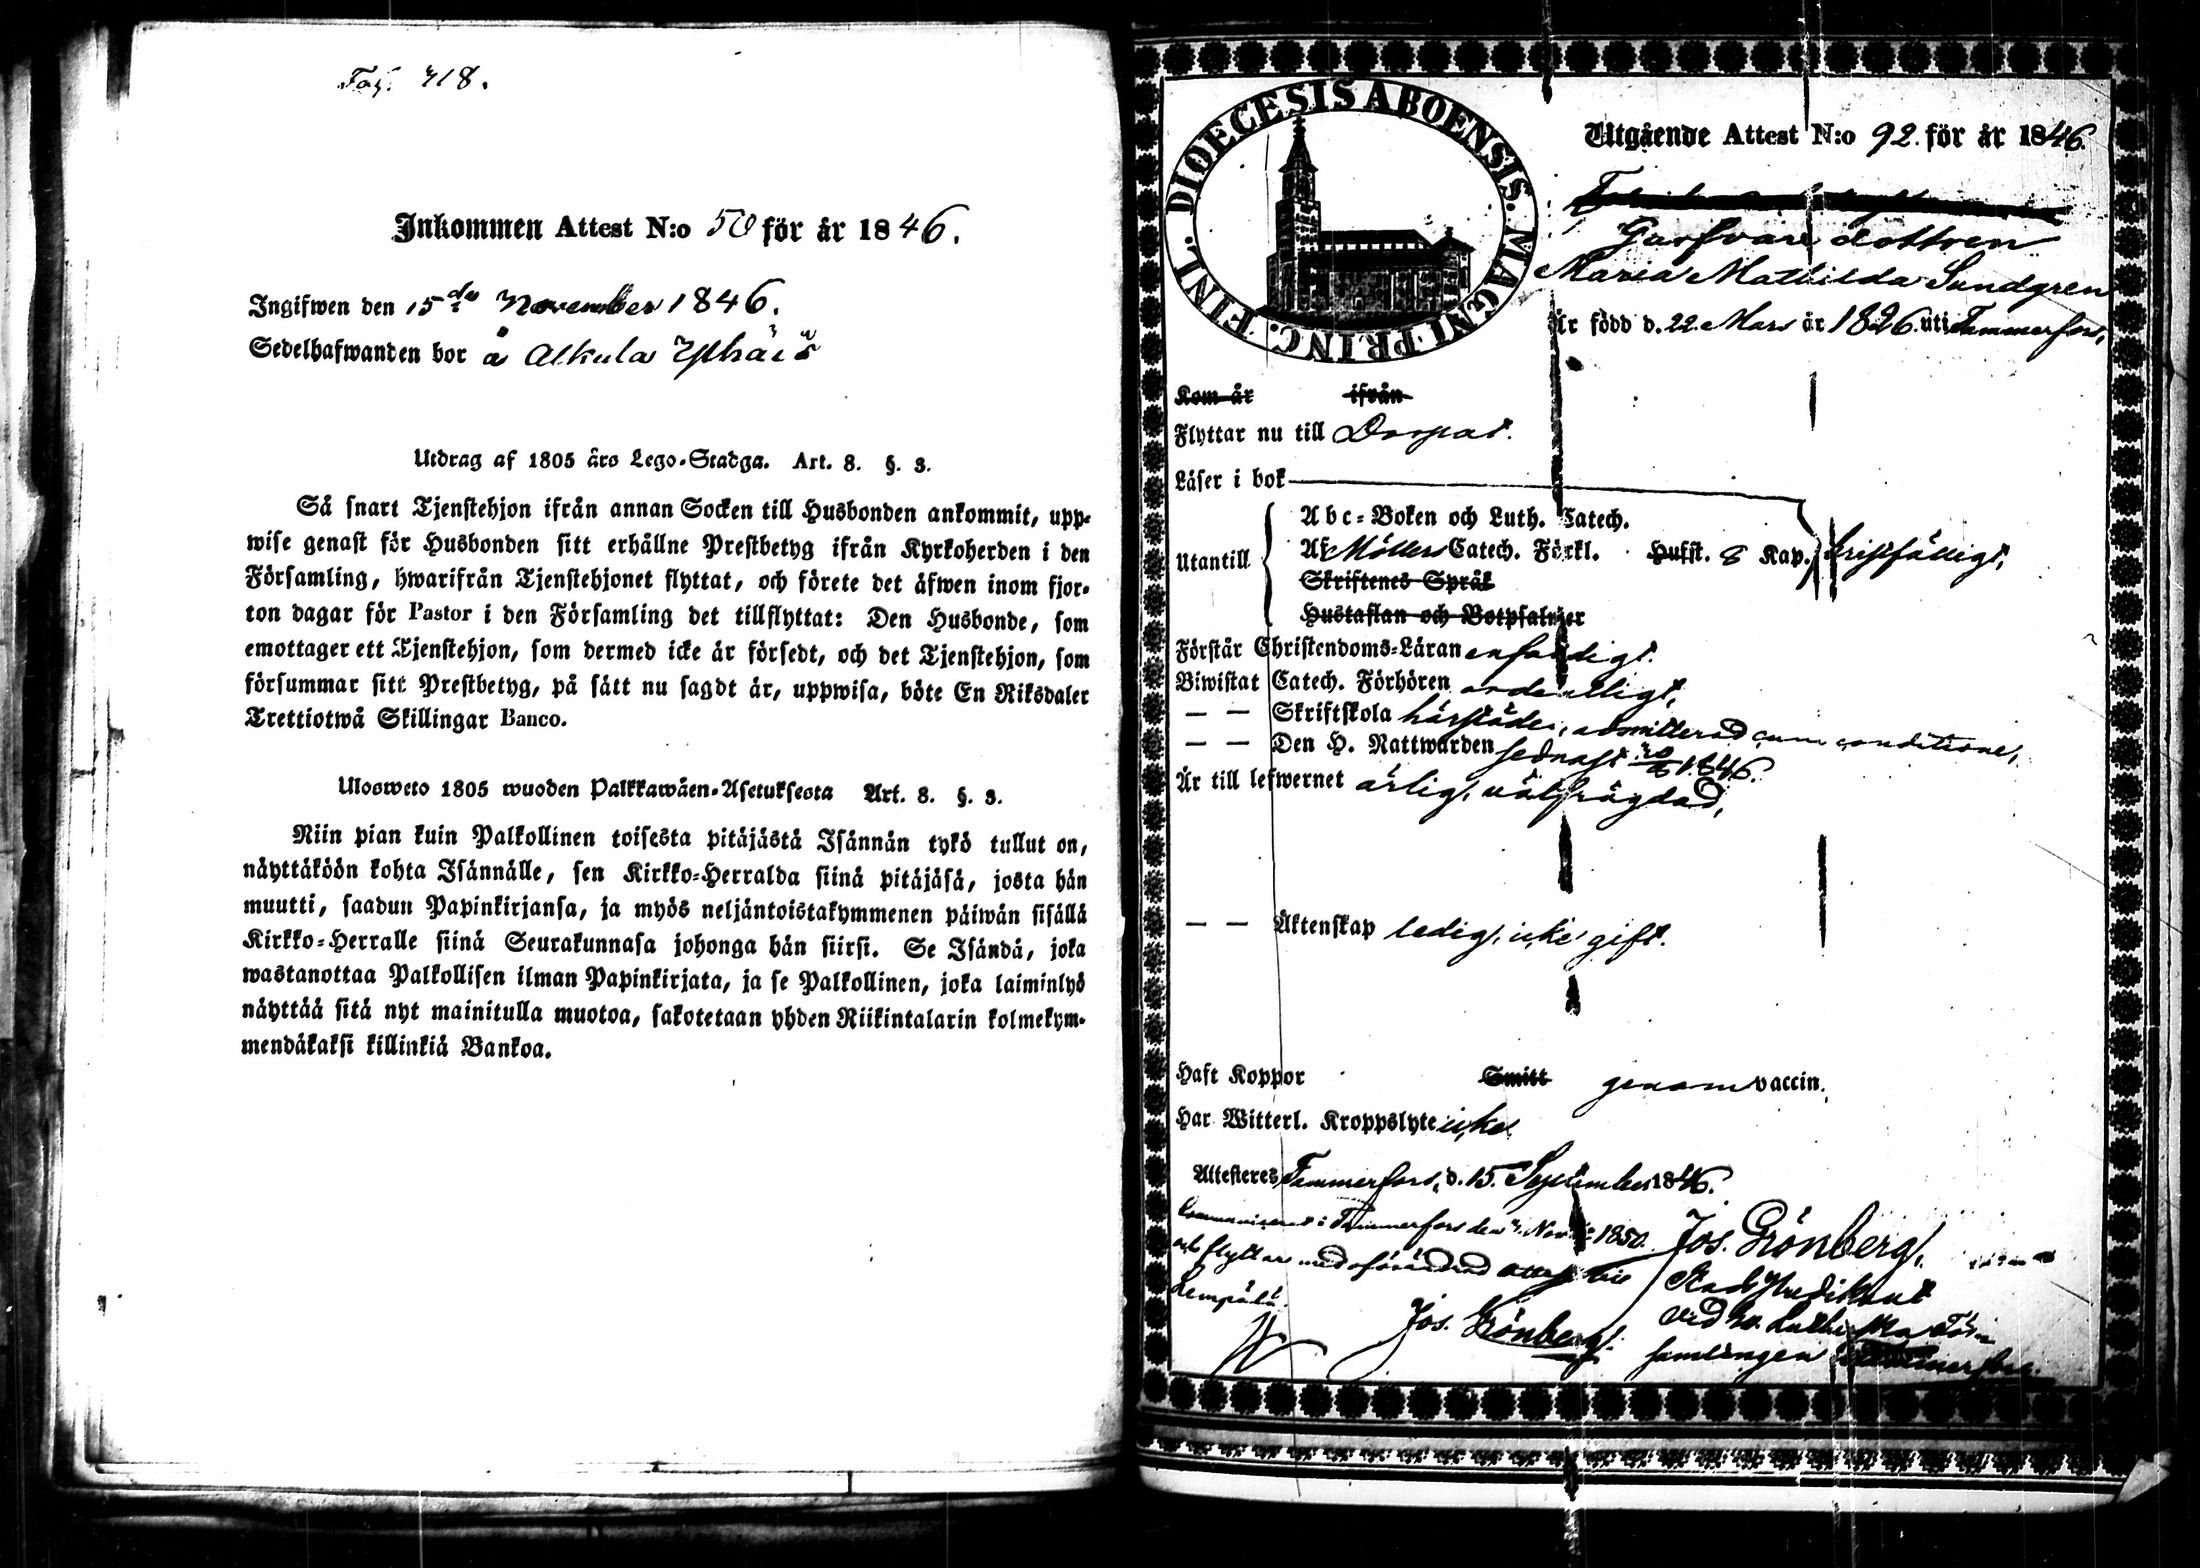 Pag. 718.
Inkommen Attest N:o 50 för år 1846.
Ingifwen den 15de November 1846.
Sedelhafwanden bor å Alkula
Utdrag af 1805 års Lego-Stadga. Art. 8. §. 3.
Så snart Tjenstehjon ifrån annan Socken till Husbonden ankommit, upp-
wise genast för Husbonden sitt erhållne Prestbetyg ifrån Kyrkoherden i den
Församling, hwarifrån Tjenstehjonet flyttat, och förete det äfwen inom fjor-
ton dagar för Pastor i den Församling det tillflyttat: Den Husbonde, som
emottager ett Tjenstehjon, som dermed icke är försedt, och det Tjenstehjon, som
försummar sitt Prestbetyg, på sätt nu sagdt är, uppwisa, böte En Riksdaler
Trettiotwå Skillingar Banco.
Ulosweto 1805 wuoden Palkkawäen-Asetuksesta Art. 8. §. 3.
Niin pian kuin Palkollinen toisesta pitäjästä Isännän tykö tullut on,
näyttäköön kohta Isännälle, sen Kirkko-Herralda siinä pitäjäsä, josta hän
muutti, saadun Papinkirjansa, ja myös neljäntoistakymmenen päiwän sisällä
Kirkko-Herralle siinä Seurakunnasa johonga hän siirsi. Se Isändä, joka
wastanottaa Palkollisen ilman Papinkirjata, ja se Palkollinen, joka laiminlyö
näyttää sitä nyt mainitulla muotoa, sakotetaan yhden Riikintalarin kolmekym-
mendäkaksi killinkiä Bankoa.
DIOECESIS ABOENSIS. MAGNI PRINC. FINL.
Utgående Attest N:o 92. för år 1846.
Garfvare dottren
Maria Mathilda Sundgren
Är född d. 22 Mars år 1826 uti Tammerfors,
Kom år ifrån
Flyttar nu till Dorpat.
Läser i bok
Utantill
Abc-Boken och Luth. Catech.
Af Möllers Catech. Förkl. Hufst. 8 Kap.
Skriftenes Språk
Hustaflan och Botpsalmer
Förstår Christendoms-Läran enfaldigt.
Biwistat Catech. Förhören ordentligt,
— — Skriftskola härstädes, admitterad cum conditione,
— — Den H. Nattwarden sednast 1846.
Är till lefwernet ärlig, välfrägdad,
— — Äktenskap ledig, icke gift.
Haft Koppor Smitt genom vaccin.
Har Witterl. Kroppslyte icke
Attesteres Tammerfors, d. 15. September 1846.
Jos. Grönberg,
Stads Predikant
vid Ev. Lutherska För
samlingen i Tammerfors.
Communicerat i Tammerfors den Nov. 1850.
och flyttar med oförändrad till
Lempälä.
Jos. Grönberg.